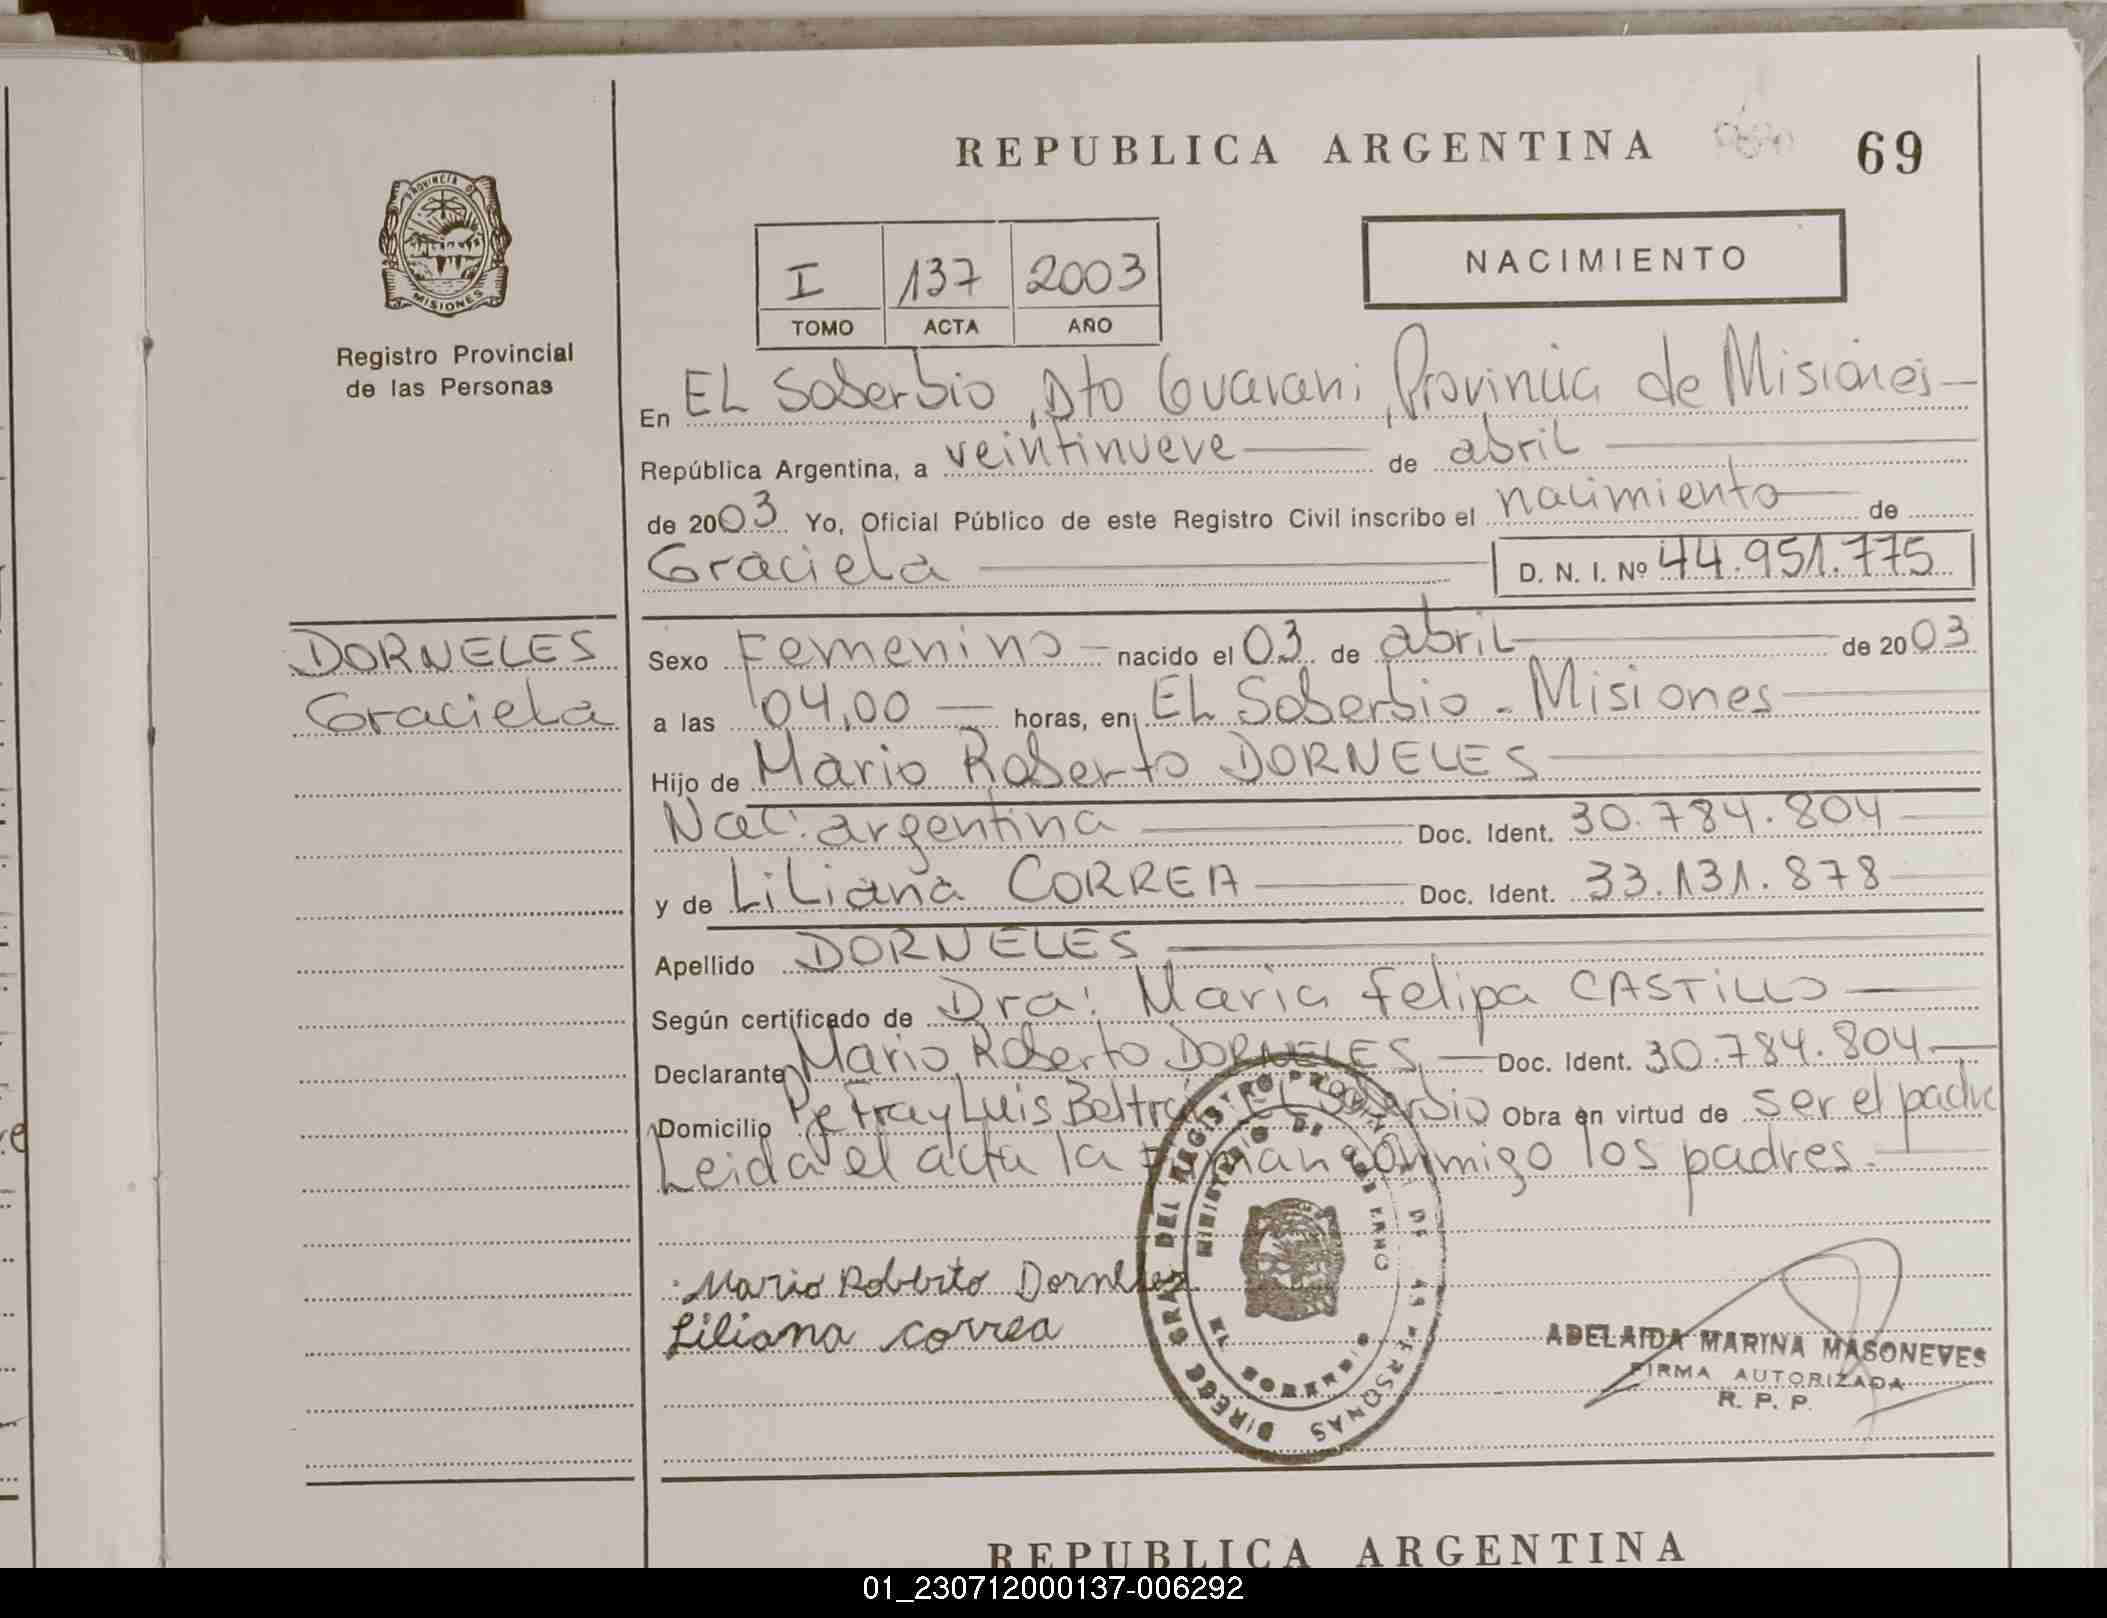 REPUBLICA ARGENTINA
69
PROVINCIA DE
MISIONES
Registro Provincial
de las Personas
I 137 2003
TOMO ACTA AÑO
NACIMIENTO
En EL Soberbio, Dto Guarani, Provincia de Misiones
República Argentina, a veintinueve de abril
de 2003 Yo, Oficial Público de este Registro Civil inscribo el nacimiento de
Graciela D. N. I. Nº 44.951.775
DORNELES
Graciela
Sexo Femenino nacido el 03 de abril de 2003
a las 04,00 horas, en EL Soberbio - Misiones
Hijo de Mario Roberto DORNELES
Nac: argentina Doc. Ident. 30.784.804
y de Liliana CORREA Doc. Ident. 33.131.878
Apellido DORNELES
Según certificado de Dra: Maria Felipa CASTILLO
Declarante Mario Roberto DORNELES Doc. Ident. 30.784.804
Domicilio Pje Fray Luis Beltrán EL Soberbio Obra en virtud de ser el padre
Leida el acta la firman conmigo los padres.
Mario Roberto Dorneles
Liliana Correa
MINISTERIO DE GOBIERNO
EL SOBERBIO
ADELAIDA MARINA MASONEVES
FIRMA AUTORIZADA
R. P. P.
REPUBLICA ARGENTINA
01_230712000137-006292